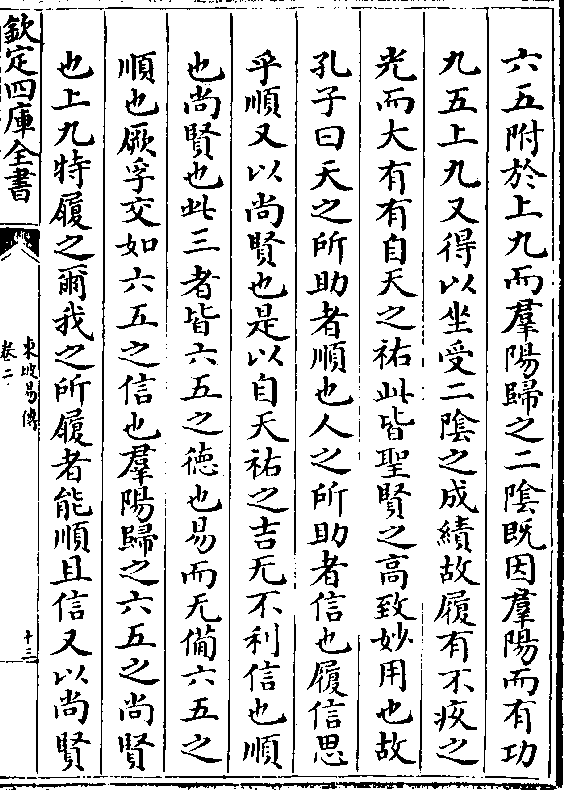 六五附於上九而羣陽歸之二陰既因羣陽而有功
九五上九又得以坐受二陰之成績故履有不疚之
光而大有有自天之祐此皆聖賢之高致妙用也故
孔子曰天之所助者順也人之所助者信也履信思
乎順又以尚賢也是以自天祐之吉无不利信也順
也尚賢也此三者皆六五之徳也易而无僃六五之
順也厥孚交如六五之信也羣陽歸之六五之尚賢
也上九特履之爾我之所履者能順且信又以尚賢
欽定四庫全書
東坡易傳
卷二
十三